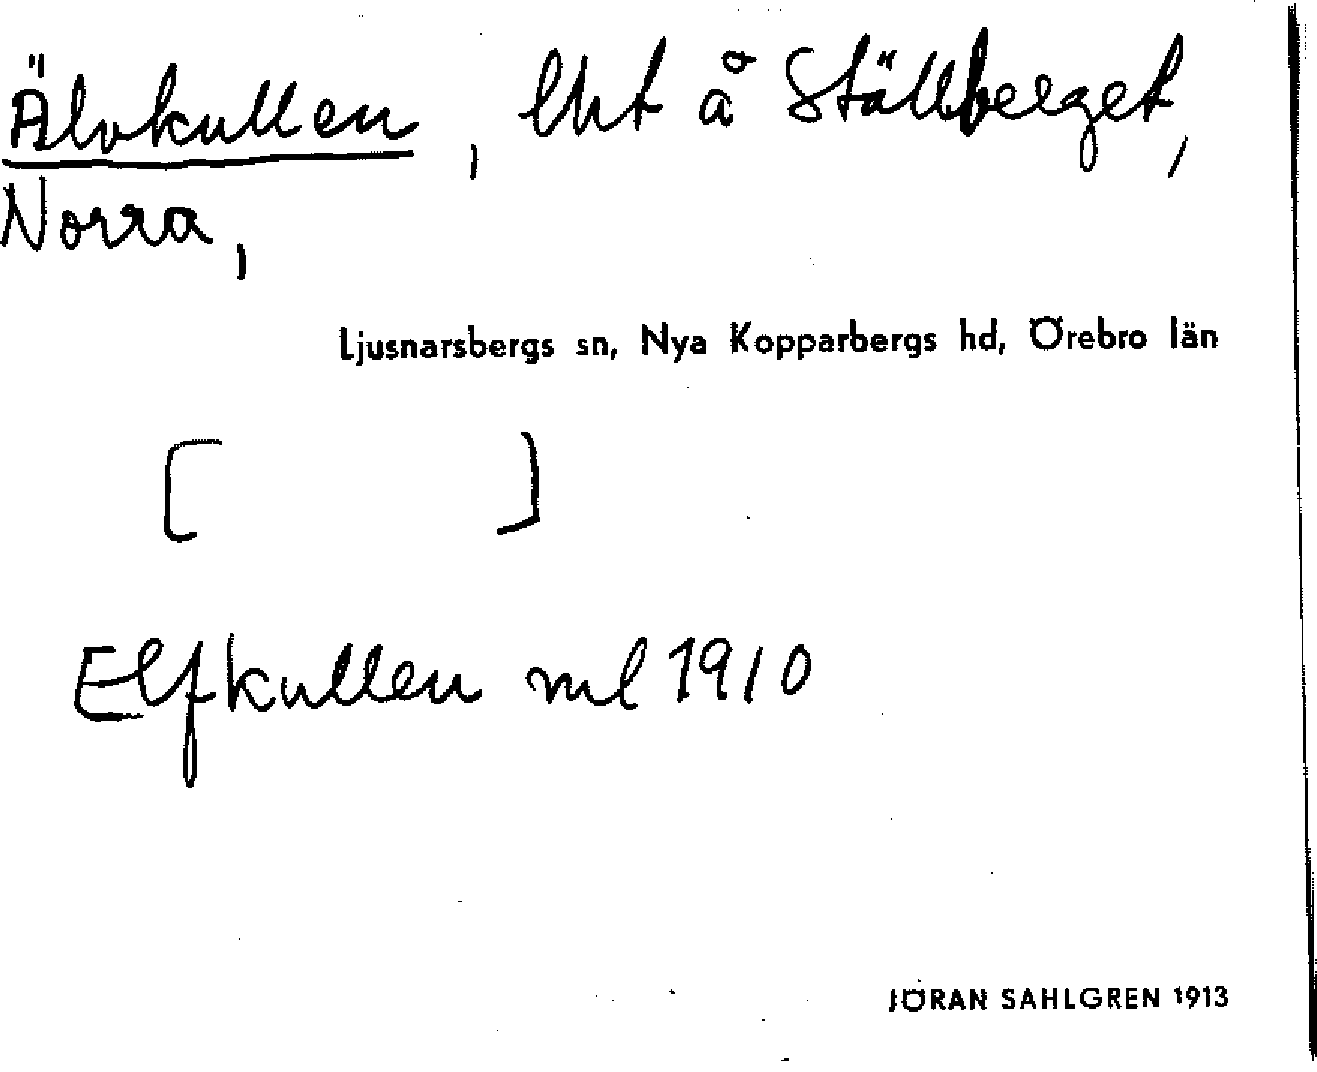 Älvkullen, lht å Ställberget,
Norra,
Ljusnarsbergs sn, Nya Kopparbergs hd, Örebro län
[ ]
Elfkullen ml 1910
JÖRAN SAHLGREN 1913